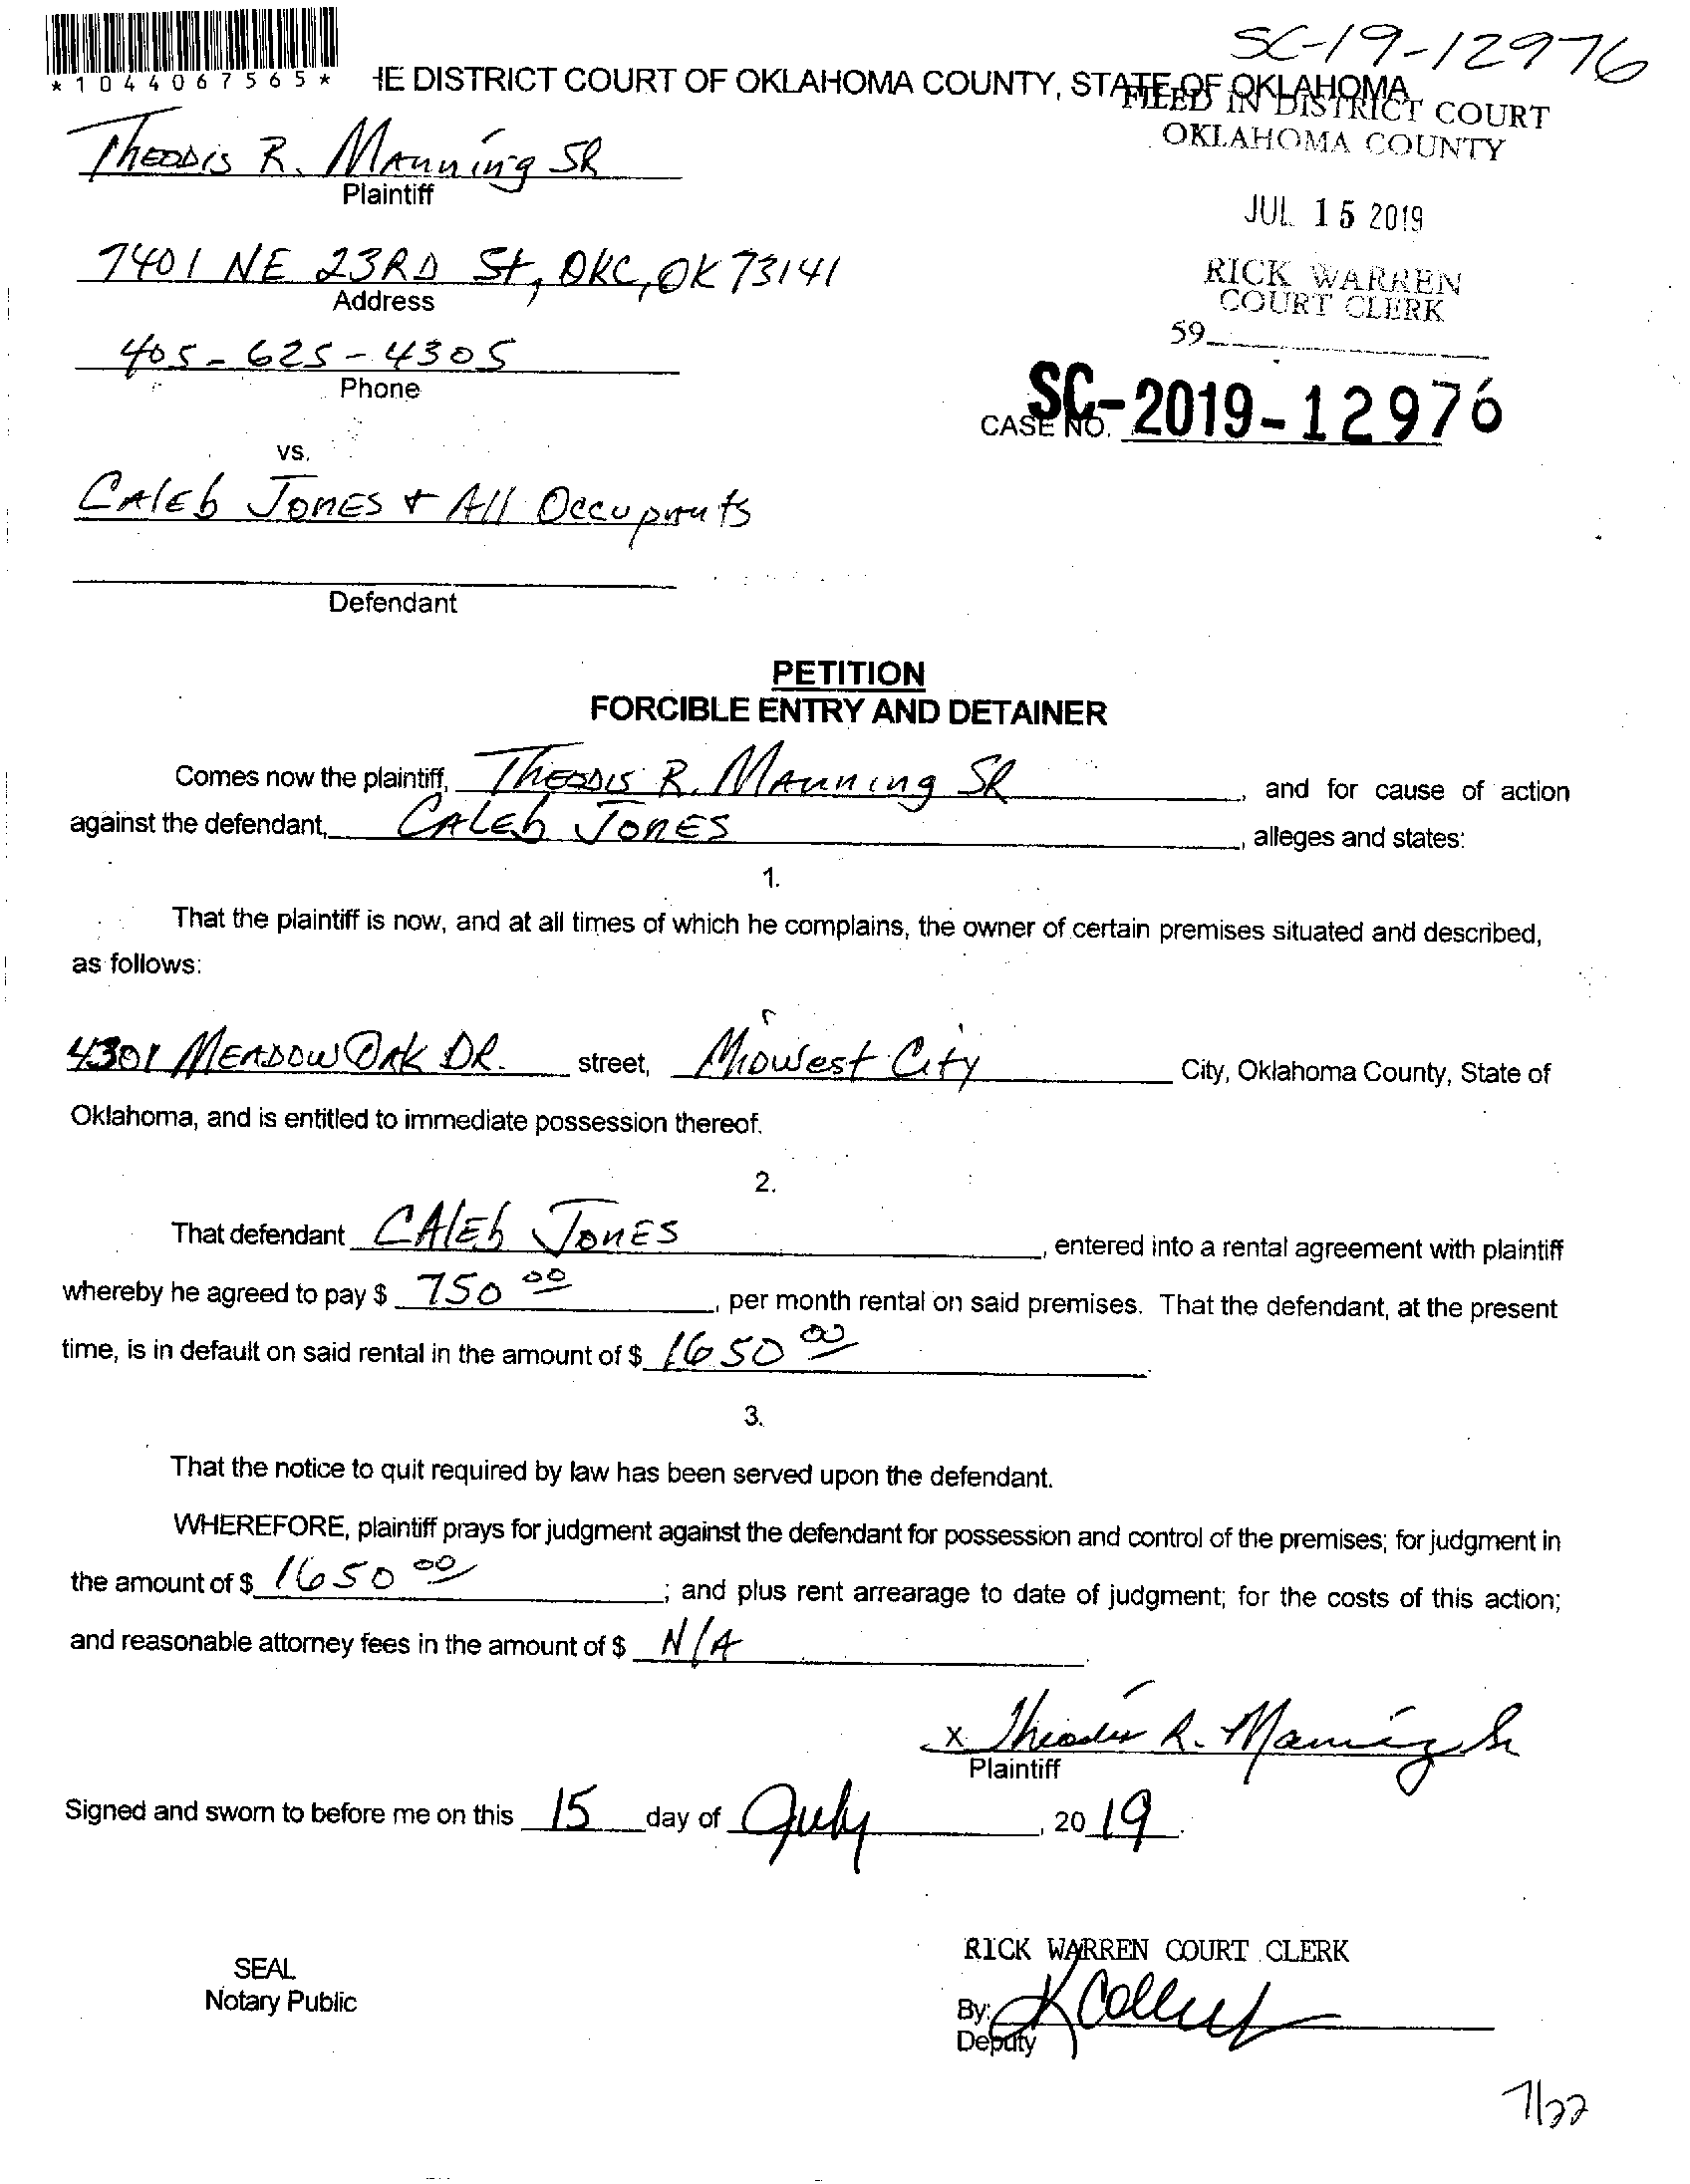 SC-19-12976
*1044067565*
HE DISTRICT COURT OF OKLAHOMA COUNTY, STATE OF OKLAHOMA
FILED IN DISTRICT COURT
OKLAHOMA COUNTY
THEODIS R. MANNING SR
Plaintiff
JUL 15 2019
7401 NE 23RD St, OKC, OK 73141
Address
RICK WARREN
COURT CLERK
59
405-625-4305
Phone
CASE NO. SC-2019-12976
vs.
CALEB JONES & All Occupants
Defendant
PETITION
FORCIBLE ENTRY AND DETAINER
Comes now the plaintiff, THEODIS R. MANNING SR, and for cause of action
against the defendant, CALEB JONES, alleges and states:
1.
That the plaintiff is now, and at all times of which he complains, the owner of certain premises situated and described,
as follows:
4301 MEADOW OAK DR. street, MIDWEST City City, Oklahoma County, State of
Oklahoma, and is entitled to immediate possession thereof.
2.
That defendant CALEB JONES, entered into a rental agreement with plaintiff
whereby he agreed to pay $ 750 00, per month rental on said premises. That the defendant, at the present
time, is in default on said rental in the amount of $ 1650 00
3.
That the notice to quit required by law has been served upon the defendant.
WHEREFORE, plaintiff prays for judgment against the defendant for possession and control of the premises; for judgment in
the amount of $ 1650 00; and plus rent arrearage to date of judgment; for the costs of this action;
and reasonable attorney fees in the amount of $ N/A
x Theodis R. Manning Sr
Plaintiff
Signed and sworn to before me on this 15 day of July, 2019.
SEAL
Notary Public
RICK WARREN COURT CLERK
By:
Deputy
7/22